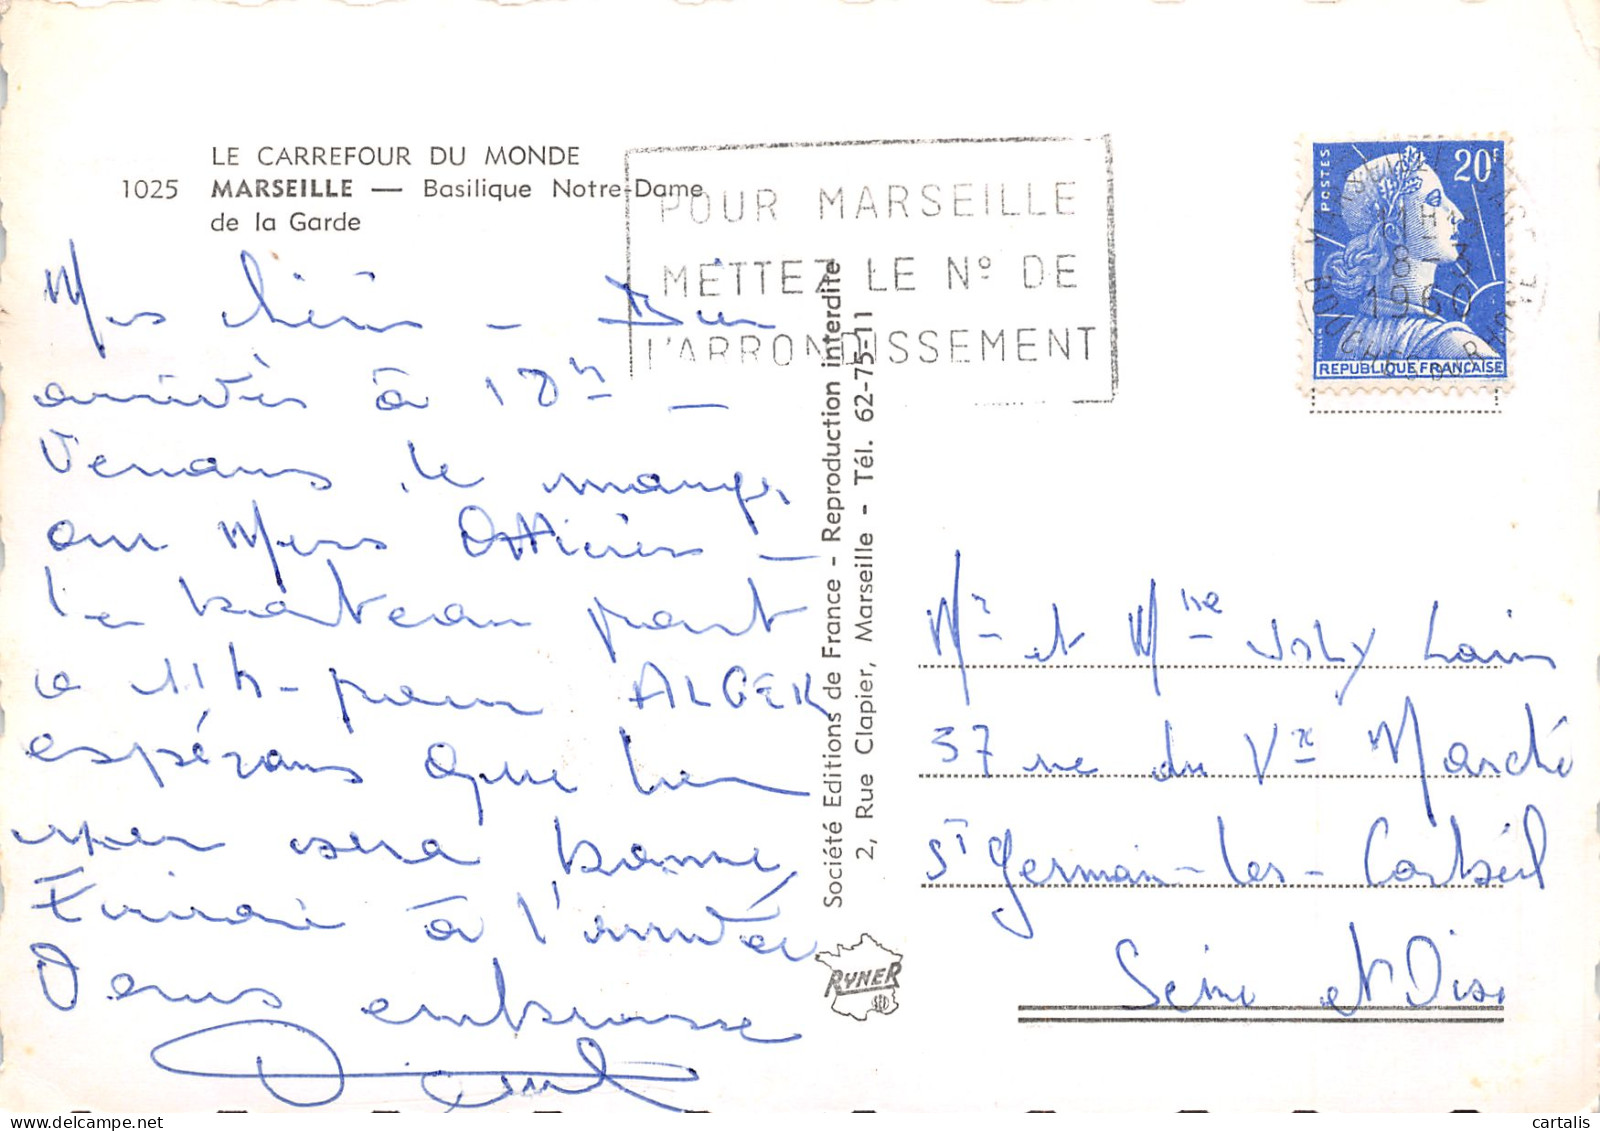 LE CARREFOUR DU MONDE
1025 MARSEILLE — Basilique Notre-Dame
de la Garde
POUR MARSEILLE
METTEZ LE Nº DE
L'ARRONDISSEMENT
POSTES
20F
8-3
1960
BOUCHES DU RHONE
REPUBLIQUE FRANÇAISE
Mes chéris - Bien
arrivés à 18h -
Venons de manger
au Mess Officiers -
le bateau part
à 11h - pour ALGER
espérons que la
mer sera bonne
Ecrirai à l'arrivée
Vous embrasse
Société Editions de France - Reproduction interdite
2, Rue Clapier, Marseille - Tél. 62-75-11
RYNER
Mr et Mme
37 rue du Vx Marché
St Germain-les-Corbeil
Seine et Oise
cartalis